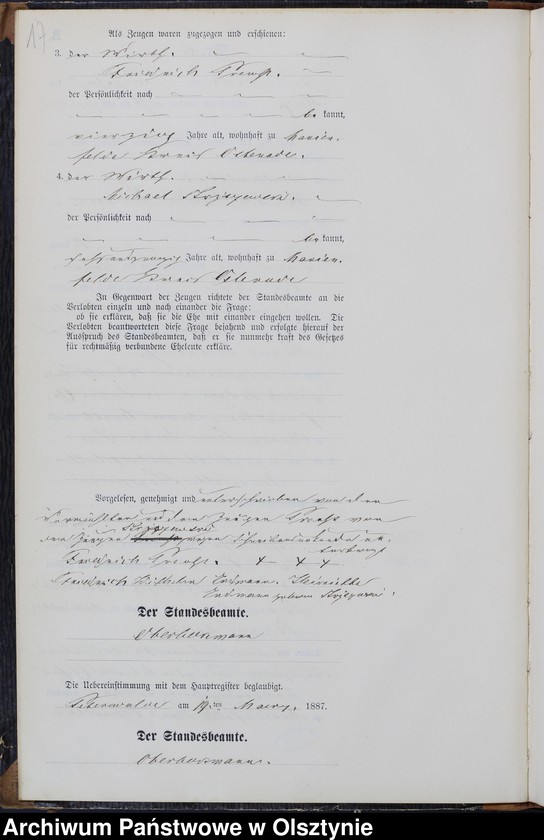 17
Als Zeugen waren zugezogen und erschienen:
3. der Wirth.
Friedrich
der Persönlichkeit nach
be kannt,
vierzig Jahre alt, wohnhaft zu Marien-
felde Kreis Osterode.
4. der Wirth.
Michael
der Persönlichkeit nach
be kannt,
Jahre alt, wohnhaft zu Marien-
felde Kreis Osterode
In Gegenwart der Zeugen richtete der Standesbeamte an die
Verlobten einzeln und nach einander die Frage:
ob sie erklären, daß sie die Ehe mit einander eingehen wollen. Die
Verlobten beantworteten diese Frage bejahend und erfolgte hierauf der
Ausspruch des Standesbeamten, daß er sie nunmehr kraft des Gesetzes
für rechtmäßig verbundene Eheleute erkläre.
Vorgelesen, genehmigt und unterschrieben von den
und dem Zeugen von
dem Zeugen wegen
Friedrich + + +
Friedrich Wilhelm Erdmann. Henriette
Erdmann geborene
Der Standesbeamte.
Die Uebereinstimmung mit dem Hauptregister beglaubigt.
Peterswalde am ten Maerz 1887.
Der Standesbeamte.
Archiwum Państwowe w Olsztynie